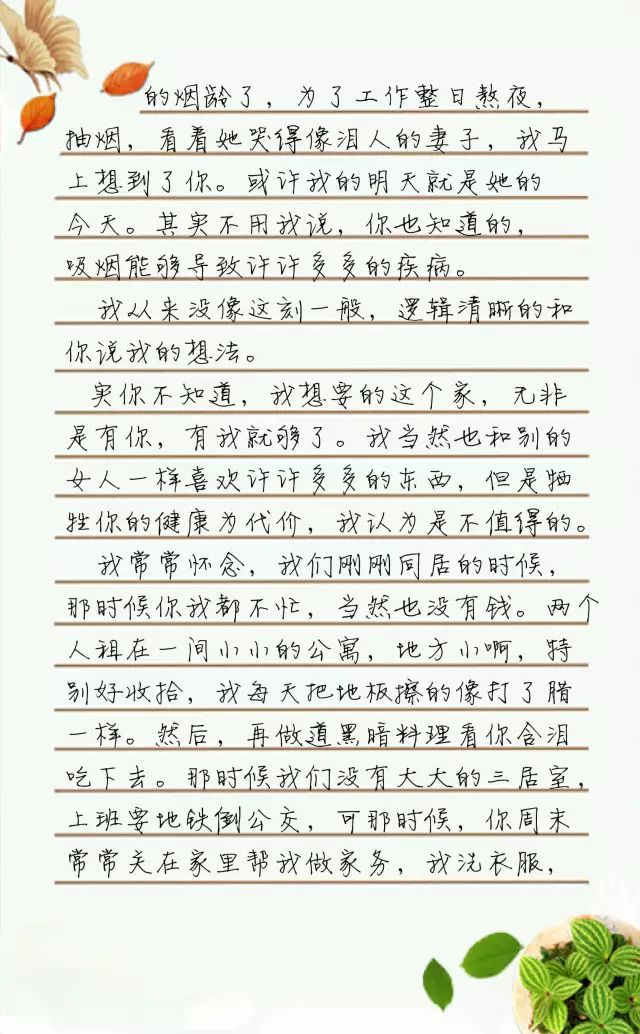 的烟龄了，为了工作整日熬夜，
抽烟，看着她哭得像泪人的妻子，我马
上想到了你。或许我的明天就是她的
今天。其实不用我说，你也知道的，
吸烟能够导致许许多多的疾病。
我从来没像这刻一般，逻辑清晰的和
你说我的想法。
实你不知道，我想要的这个家，无非
是有你，有我就够了。我当然也和别的
女人一样喜欢许许多多的东西，但是牺
牲你的健康为代价，我认为是不值得的。
我常常怀念，我们刚刚同居的时候，
那时候你我都不忙，当然也没有钱。两个
人租在一间小小的公寓，地方小啊，特
别好收拾，我每天把地板擦的像打了腊
一样。然后，再做道黑暗料理看你含泪
吃下去。那时候我们没有大大的三居室，
上班要地铁倒公交，可那时候，你周末
常常关在家里帮我做家务，我洗衣服，